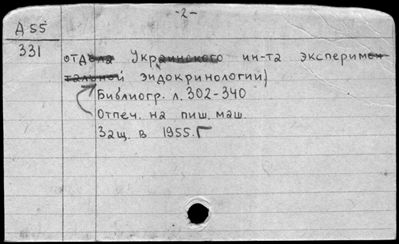 -2-
А 55
331
отдела Украинского ин-та эксперимен
тальной эндокринологии)
Библиогр. л. 302-340
Отпеч. на пиш. маш.
Защ. в 1955 г